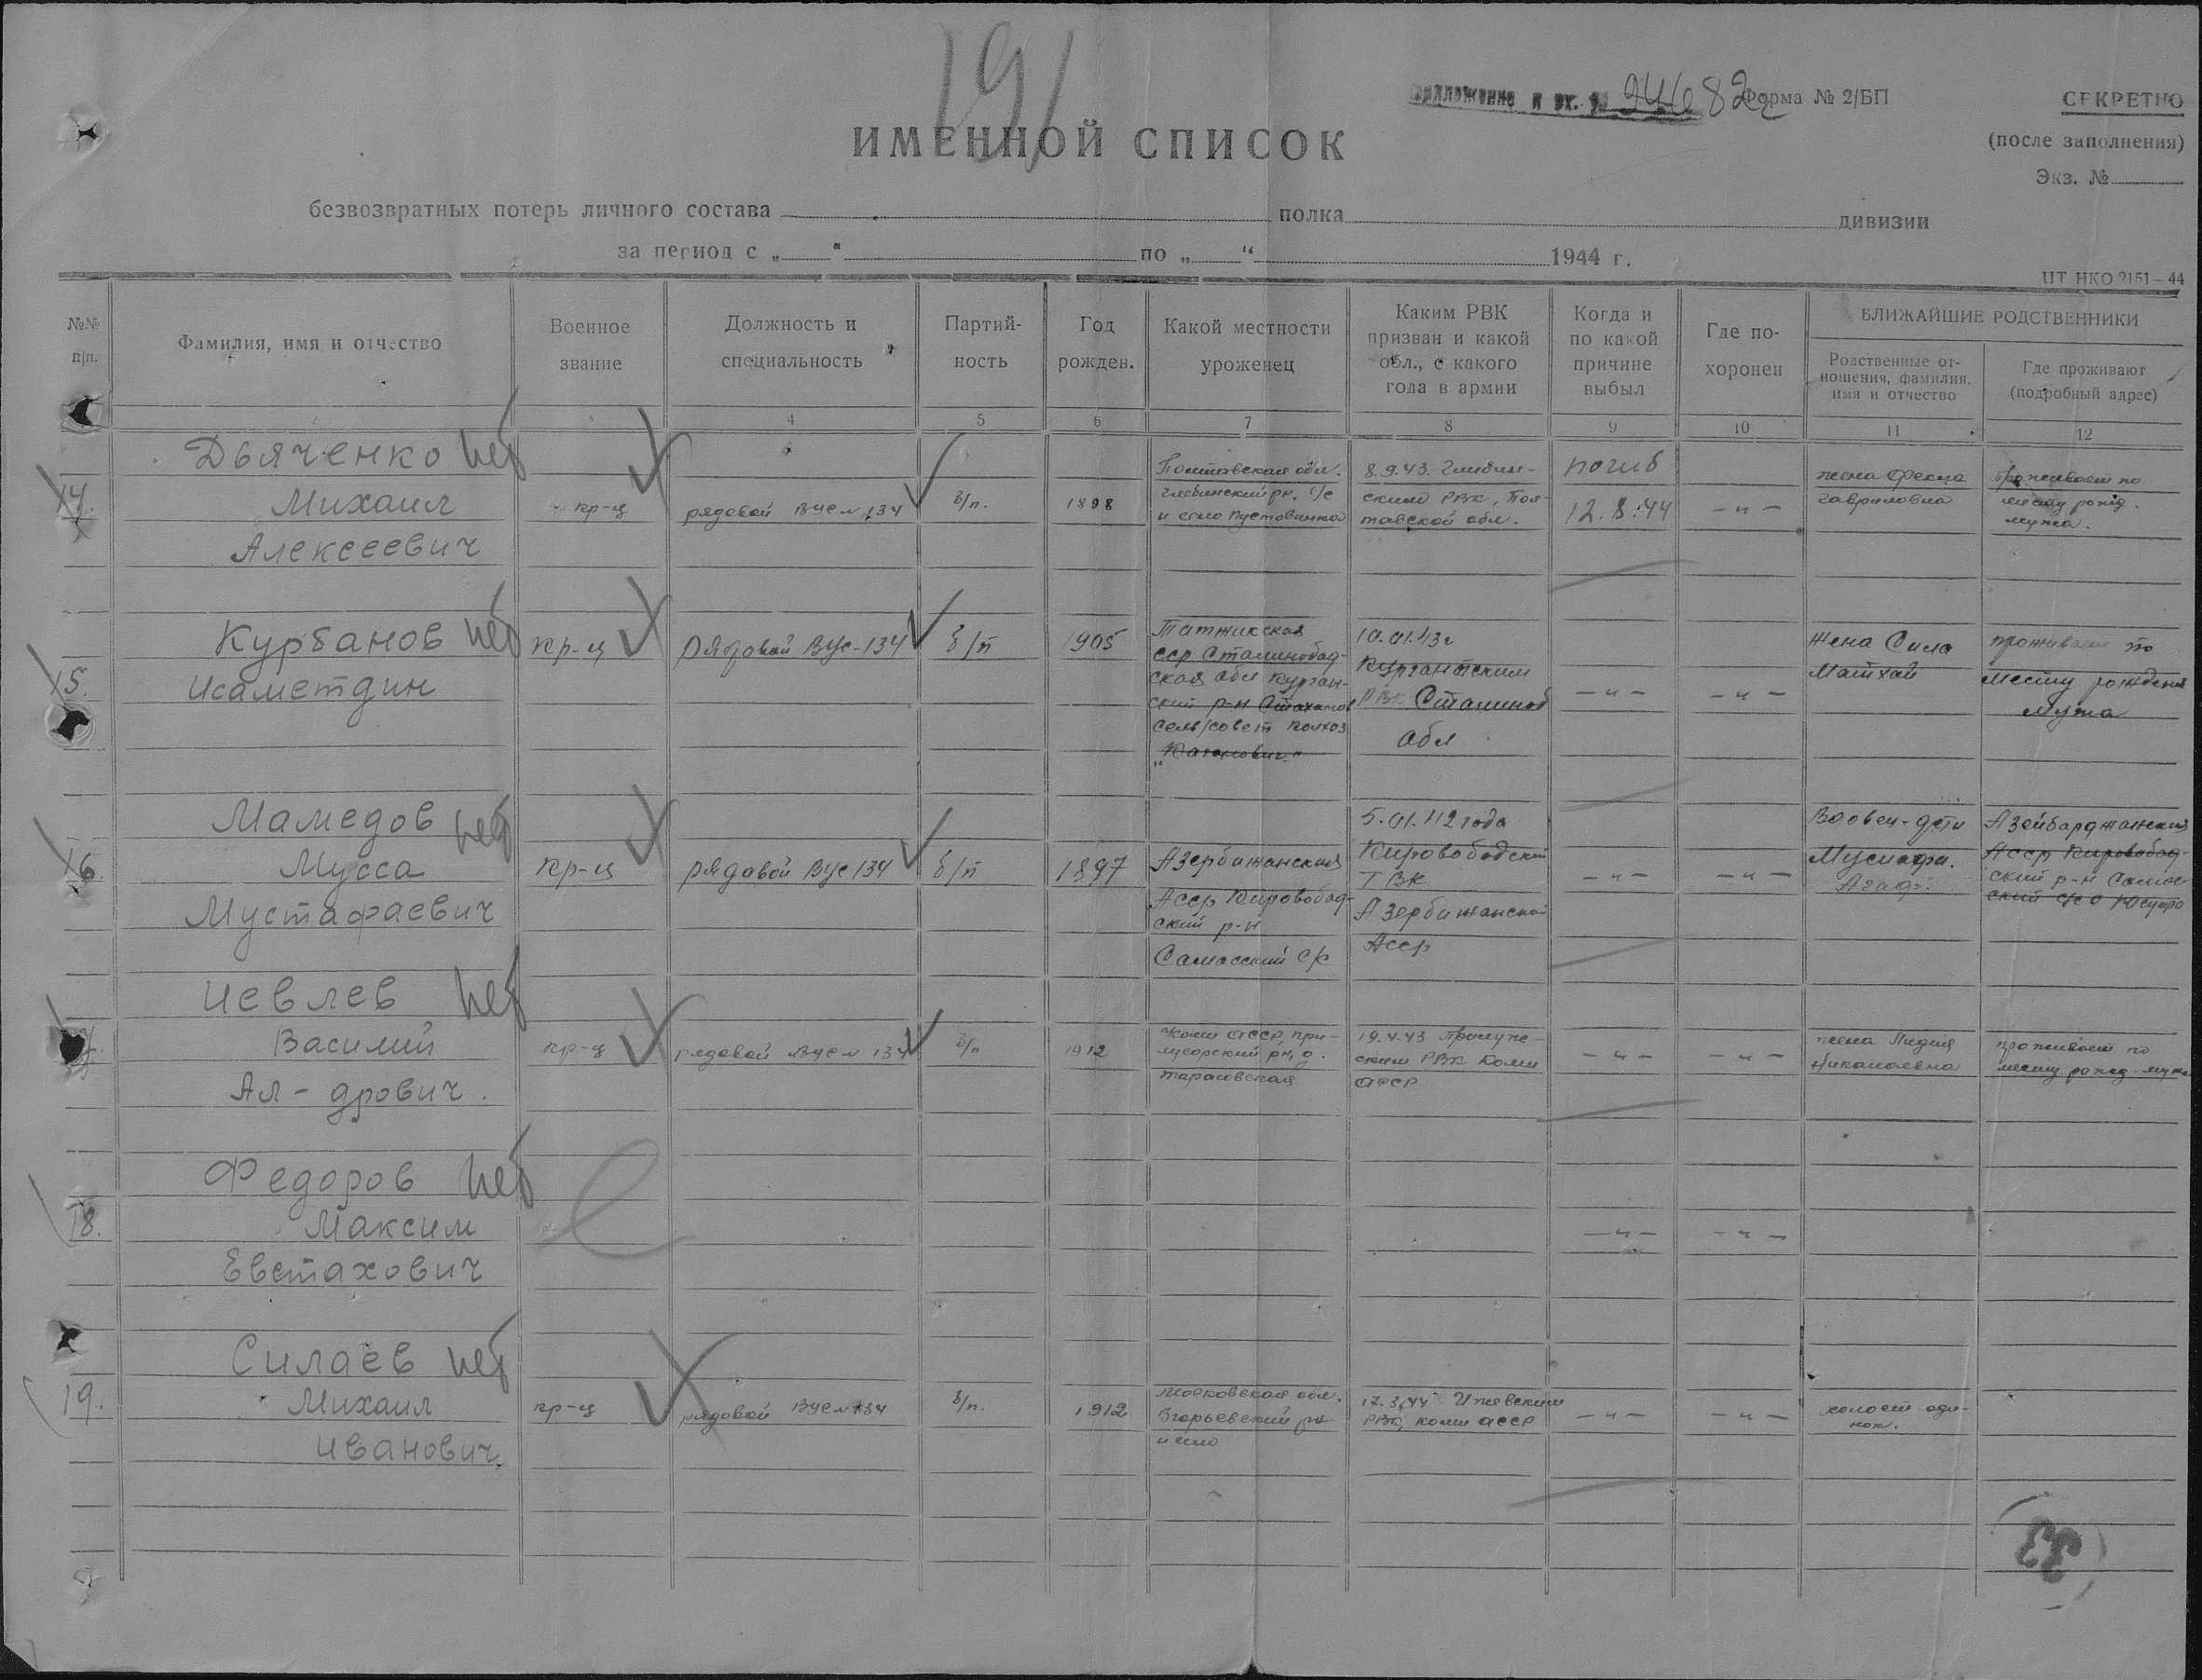 191
Приложение к вх. № 24682с Форма № 2/БП
СЕКРЕТНО
(после заполнения)
Экз. №
ИМЕННОЙ СПИСОК
безвозвратных потерь личного состава полка дивизии
за период с „ “ по „ “ 1944 г.
ЦТ НКО 2151—44
№№ п/п.
Фамилия, имя и отчество
Военное звание
Должность и специальность
Партий-
ность
Год рожден.
Какой местности уроженец
Каким РВК
призван и какой
обл., с какого
года в армии
Когда и
по какой
причине
выбыл
Где по-
хоронен
БЛИЖАЙШИЕ РОДСТВЕННИКИ
Родственные от-
ношения, фамилия,
имя и отчество
Где проживают
(подробный адрес)
3 4 5 6 7 8 9 10 11 12
14.
Дьяченко нет
Михаил
Алексеевич
кр-ц
рядовой ВУС № 134
б/п.
1898
Полтавская обл.
Глобинский рн. с/с
и село Пустовинка
8.9.43. Глобин-
ским РВК, Пол-
тавской обл.
погиб
12.8.44
— " —
жена
Гавриловна
Проживает по
месту рожд.
мужа.
15.
Курбанов нет
Исаметдин
кр-ц
Рядовой ВУС-134
б/п
1905
Татжикская
сср Сталинобад-
ская обл Курган-
ский р-н Стаханов
сель/совет колхоз
„Каганович"
10.01.43г
Кургантским
РВК Сталиноб
обл
— " —
— " —
Жена Сила
Матхай
проживает по
месту рождения
мужа
16.
Мамедов нет
Мусса
Мустафаевич
кр-ц
рядовой ВУС 134
б/п
1897
Азербижанская
Асср Кировобад-
ский р-н
Самасский с/с
5.01.42 года
Кировобадский
ГВК
Азербижанской
Асср
— " —
— " —
Вдовец-дети
Азейбарджанская
Асср Кировобад-
ский р-н
17.
Иевлев нет
Василий
Ал-дрович.
кр-ц
рядовой ВУС № 134
б/п
1912
Коми АССР, при-
лузорский рн, д.
тарасовская
19.4.43 Прилузс-
ким РВК Коми
АССР
— " —
— " —
жена Лидия
Николаевна
проживает по
месту рожд. мужа
18.
Федоров нет
Максим
Евстахович
— " —
— " —
19.
Силаев нет
Михаил
Иванович
кр-ц
рядовой ВУС № 134
б/п.
1912
Московская обл.
Егорьевский рн
и село
17.3.44 Ижевским
РВК, Коми АССР
— " —
— " —
холост-оди-
нок.
33